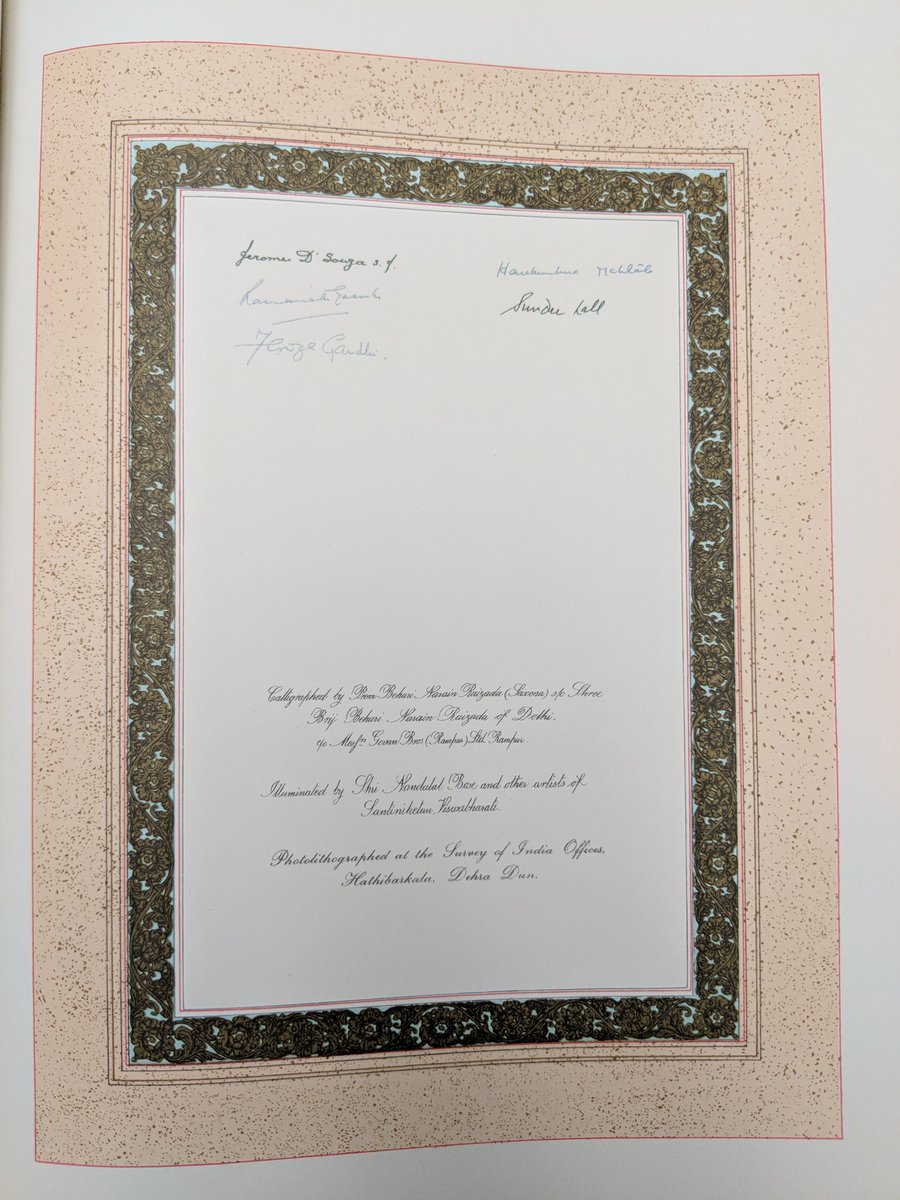 Jerome D'Souza s.j.
Feroze Gandhi.
Harekrushna Mahtab
Sunder Lall
Calligraphed by Prem Behari Narain Raizada (Saxena) s/o Shree
Brij Behari Narain Raizada of Delhi.
c/o Messrs Govan Bros (Rampur) Ltd. Rampur.
Illuminated by Shri Nandalal Bose and other artists of
Santiniketan, Viswabharati.
Photolithographed at the Survey of India Offices,
Hathibarkala, Dehra Dun.